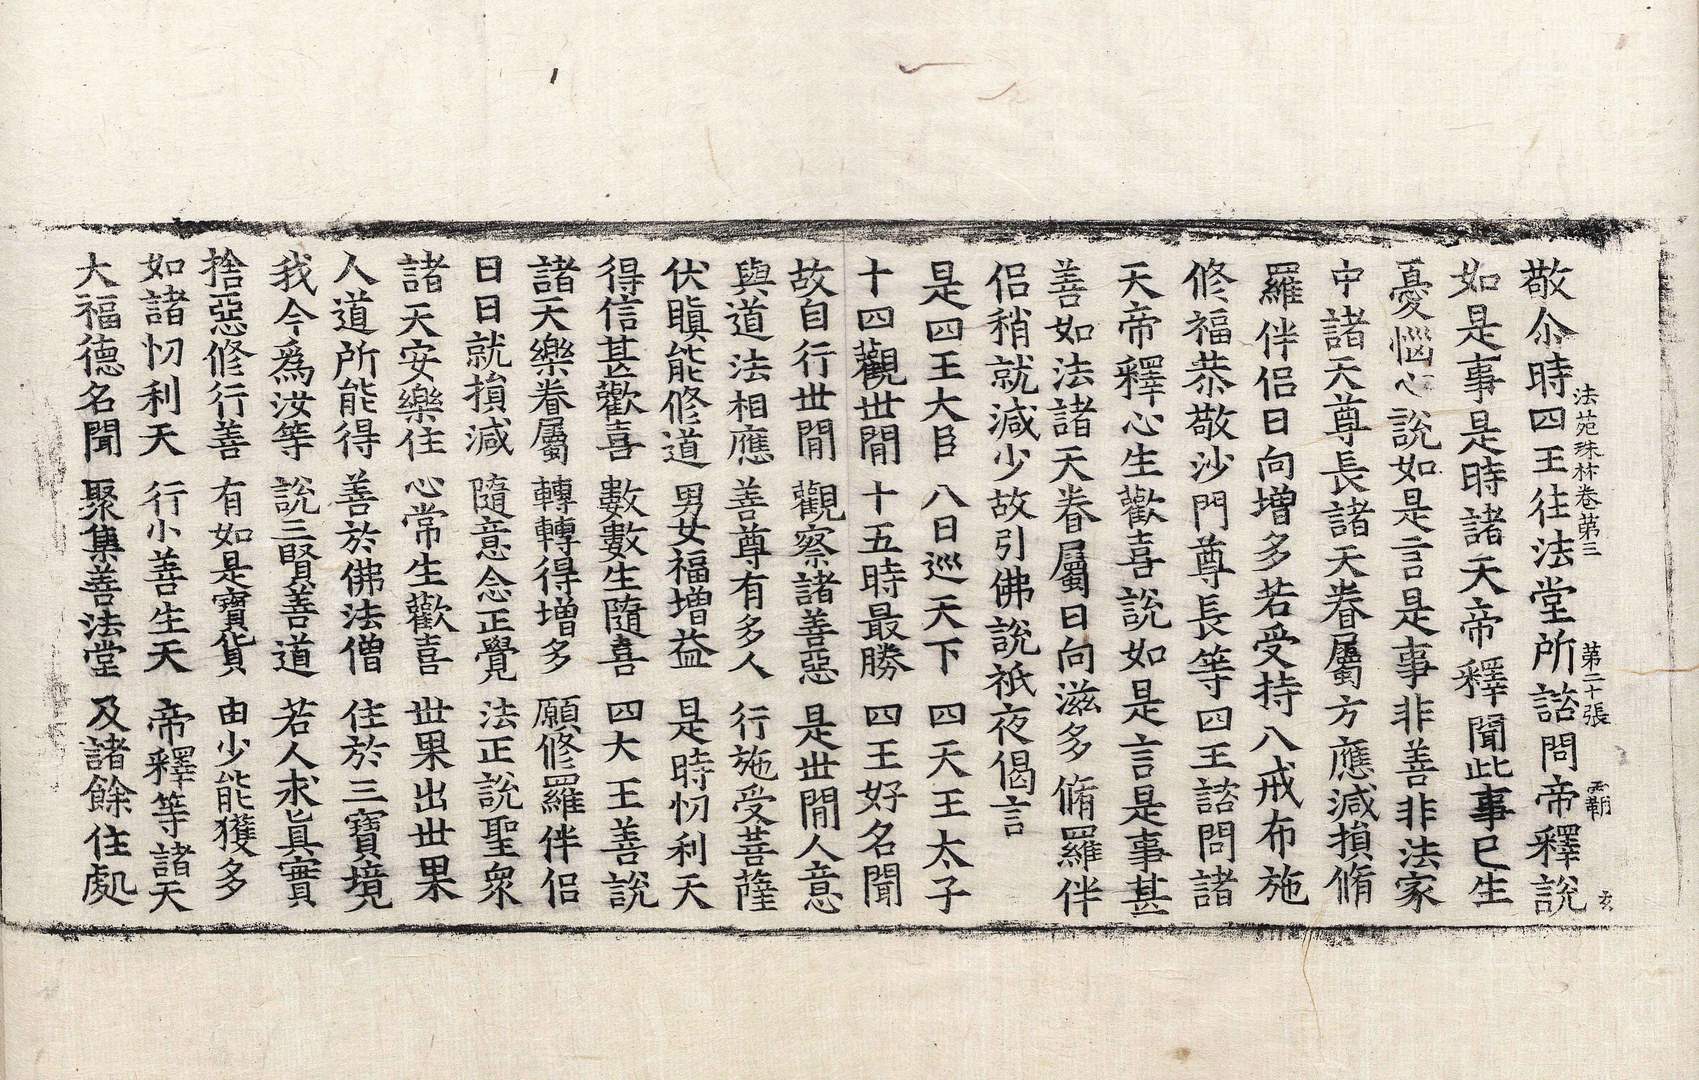 敬尒時四王往法堂所諮問帝釋說
法苑珠林卷第三　第二十張　覇　玄
如是事是時諸天帝釋聞此事已生
憂惱心說如是言是事非善非法家
中諸天尊長諸天眷屬方應減損脩
羅伴侶日向增多若受持八戒布施
修福恭敬沙門尊長等四王諮問諸
天帝釋心生歡喜說如是言是事甚
善如法諸天眷屬日向滋多脩羅伴
侶稍就減少故引佛說祇夜偈言
是四王大臣　八日巡天下　四天王太子
十四觀世閒　十五時最勝　四王好名聞
故自行世閒　觀察諸善惡　是世閒人意
與道法相應　善尊有多人　行施受菩薩
伏瞋能修道　男女福增益　是時忉利天
得信甚歡喜　數數生隨喜　四大王善說
諸天樂眷屬　轉轉得增多　願修羅伴侶
日日就損減　隨意念正覺　法正說聖衆
諸天安樂住　心常生歡喜　世果出世果
人道所能得　善於佛法僧　住於三寶境
我今爲汝等　說三賢善道　若人求眞實
捨惡修行善　有如是寶貨　由少能獲多
如諸忉利天　行小善生天　帝釋等諸天
大福德名聞　聚集善法堂　及諸餘住處